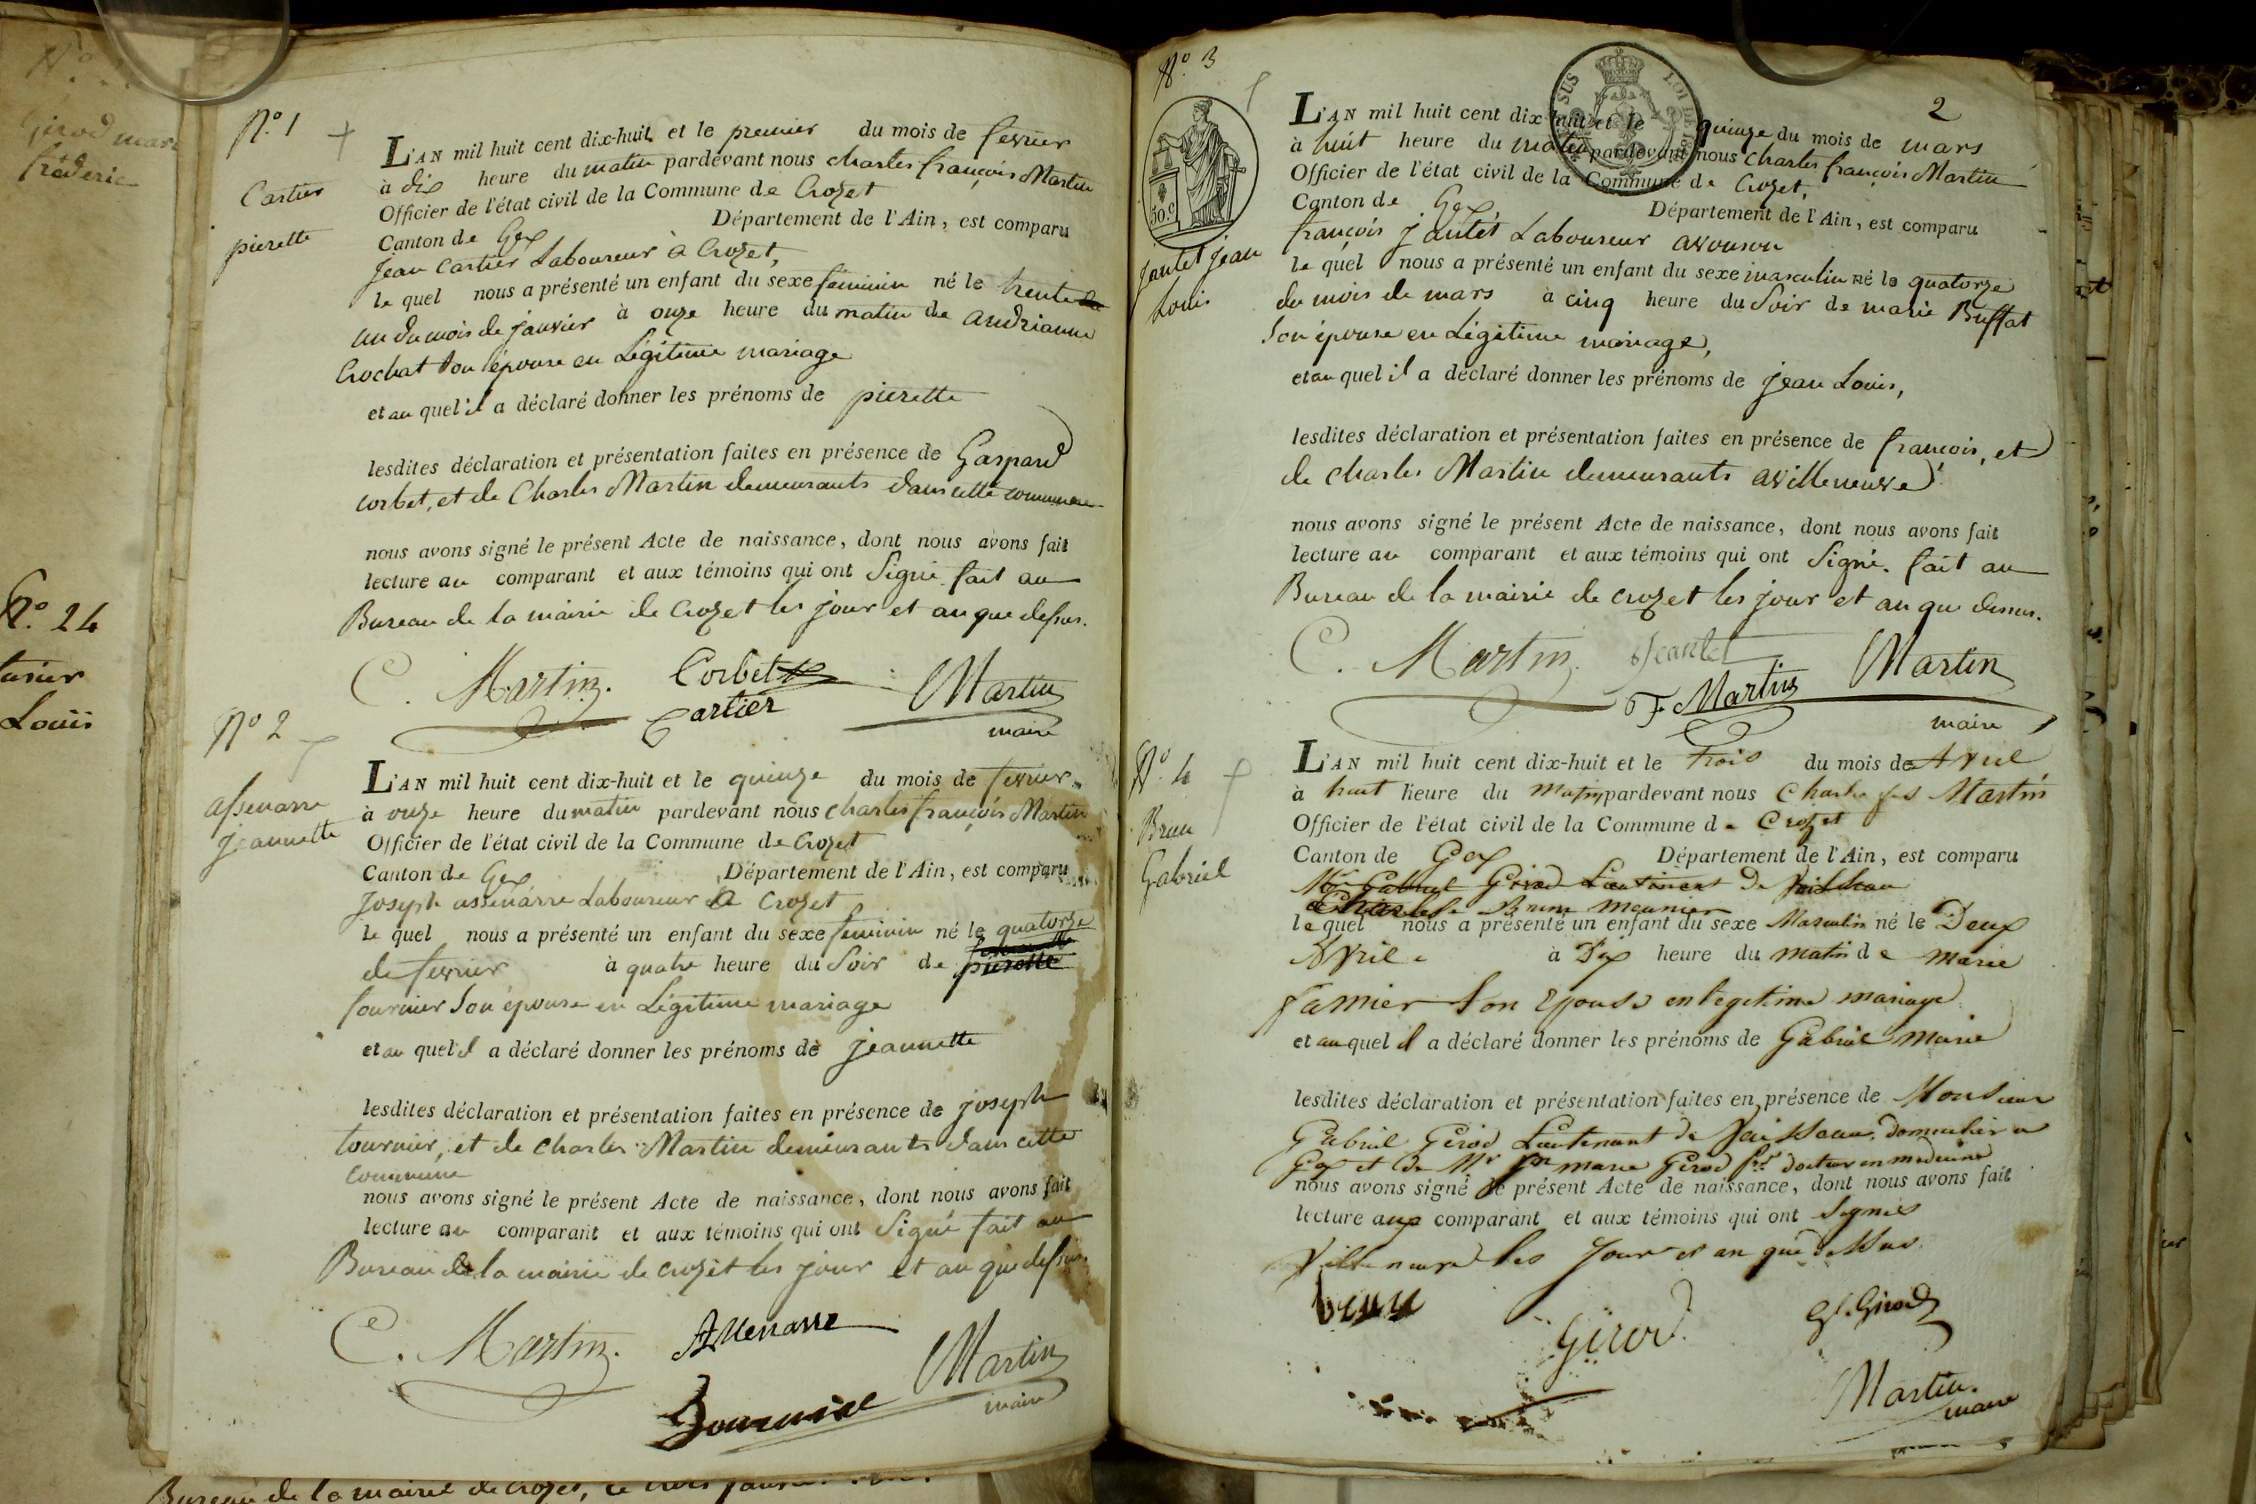 Girod marie
frédéric
N.º 24
Louis
N.º 1
Cartier
pierette
L'AN mil huit cent dix-huit et le premier du mois de fevrier
à dix heure du matin pardevant nous charles françois Martin
Officier de l'état civil de la Commune de Crozet
Canton de Gex Département de l'Ain, est comparu
jean Cartier Laboureur à Crozet,
le quel nous a présenté un enfant du sexe feminin né le trente
un du mois de janvier à onze heure du matin de andrianne
Crochat son épouse en Légitime mariage
et au quel il a déclaré donner les prénoms de pierette
lesdites déclaration et présentation faites en présence de Gaspard
Corbet, et de Charles Martin demeurants dans cette commune
nous avons signé le présent Acte de naissance, dont nous avons fait
lecture au comparant et aux témoins qui ont Signé fait au
Bureau de la mairie de Crozet les jour et an que dessus.
C. Martin. Corbet Martin
Cartier maire
Nº 2
assenarre
jeannette
L'AN mil huit cent dix-huit et le quinze du mois de fevrier
à onze heure du matin pardevant nous charles françois Martin
Officier de l'état civil de la Commune de Crozet
Canton de Gex Département de l'Ain, est comparu
Joseph assenarre Laboureur à Crozet
le quel nous a présenté un enfant du sexe feminin né le quatorze
de fevrier à quatre heure du Soir de pierette
fournier Son épouse en Légitime mariage
et au quel il a déclaré donner les prénoms de jeannette
lesdites déclaration et présentation faites en présence de joseph
tournier, et de charles Martin demeurants dans cette
commune
nous avons signé le présent Acte de naissance, dont nous avons fait
lecture au comparant et aux témoins qui ont Signé fait au
Bureau de la mairie de crozet les jour et an que dessus.
C. Martin. Assenarre Martin
maire
Bureau de la mairie de crozet, le trois
Nº. 3
50.c
SUS LOI DE
2
jantet jean
Louis
L'AN mil huit cent dix-huit et le quinze du mois de mars
à huit heure du matin pardevant nous charles françois Martin
Officier de l'état civil de la Commune de Crozet,
Canton de Gex Département de l'Ain, est comparu
françois jantet Laboureur avouson
le quel nous a présenté un enfant du sexe masculin né le quatorze
du mois de mars à cinq heure du Soir de marie Buffat
Son épouse en Légitime mariage,
et au quel il a déclaré donner les prénoms de jean Louis,
lesdites déclaration et présentation faites en présence de françois, et
de charles Martin demeurants avilleneuve
nous avons signé le présent Acte de naissance, dont nous avons fait
lecture au comparant et aux témoins qui ont Signé. fait au
Bureau de la mairie de crozet les jour et an que dessus.
C. Martin. Jeantet Martin
F. Martin maire
Nº. 4
Brun
Gabriel
L'AN mil huit cent dix-huit et le trois du mois de Avril
à huit heure du Matin pardevant nous Charles fois Martin
Officier de l'état civil de la Commune de Crozet
Canton de Gex Département de l'Ain, est comparu
Mr Gabriel Girod Lieutenant de Vaisseau
Brun meunier
le quel nous a présenté un enfant du sexe Masculin né le Deux
Avril à Dix heure du matin de marie
Son Epouse en legetime mariage
et au quel il a déclaré donner les prénoms de Gabriel Marie
lesdites déclaration et présentation faites en présence de Monsieur
Gabriel Girod Lieutenant de Vaisseau, domicilié a
Gex et de Mr marie Girod docteur en medecine
nous avons signé le présent Acte de naissance, dont nous avons fait
lecture aux comparant et aux témoins qui ont Signés
Villeneuve les Jour et an que dessus
brun
Girod. G. Girod
Martin.
maire